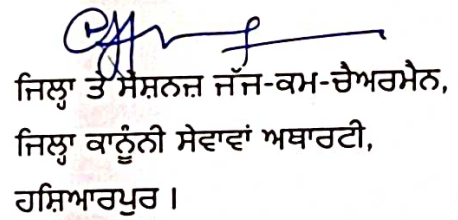 ਜਿਲ੍ਹਾ ਤੇ ਸੈਸ਼ਨਜ਼ ਜੱਜ-ਕਮ-ਚੈਅਰਮੈਨ,
ਜਿਲ੍ਹਾ ਕਾਨੂੰਨੀ ਸੇਵਾਵਾਂ ਅਥਾਰਟੀ,
ਹਸ਼ਿਆਰਪੁਰ ।